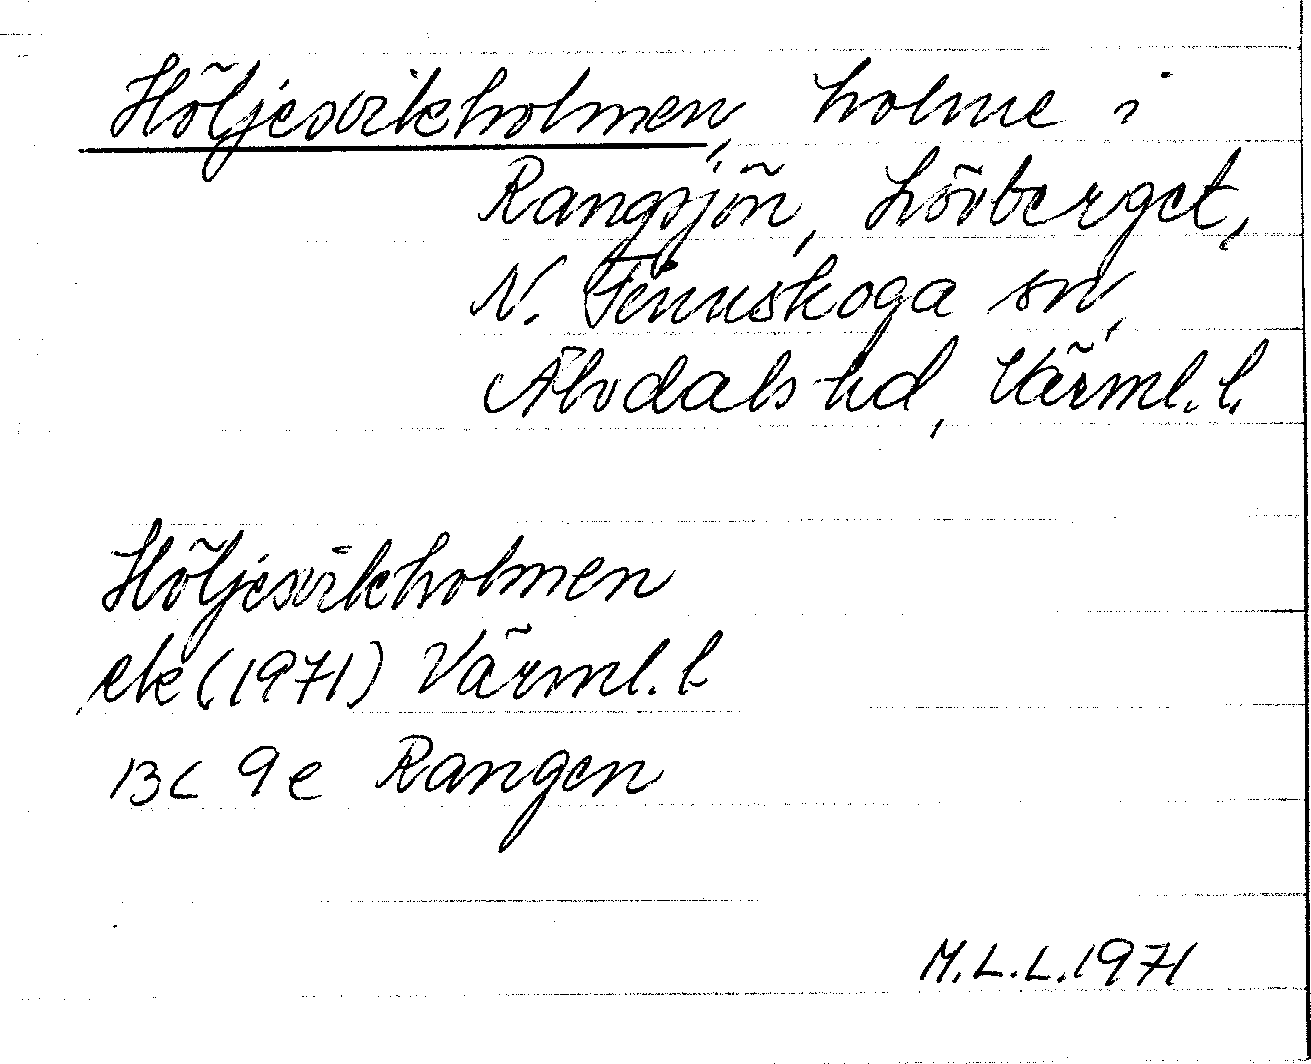 Höljesvikholmen, holme i
Rangsjön, Lövberget,
N. Finnskoga sn,
Älvdals hd, Värml. l.
Höljesvikholmen
ek (1971) Värml. l
13C 9e Rangen
M.L.L. 1971